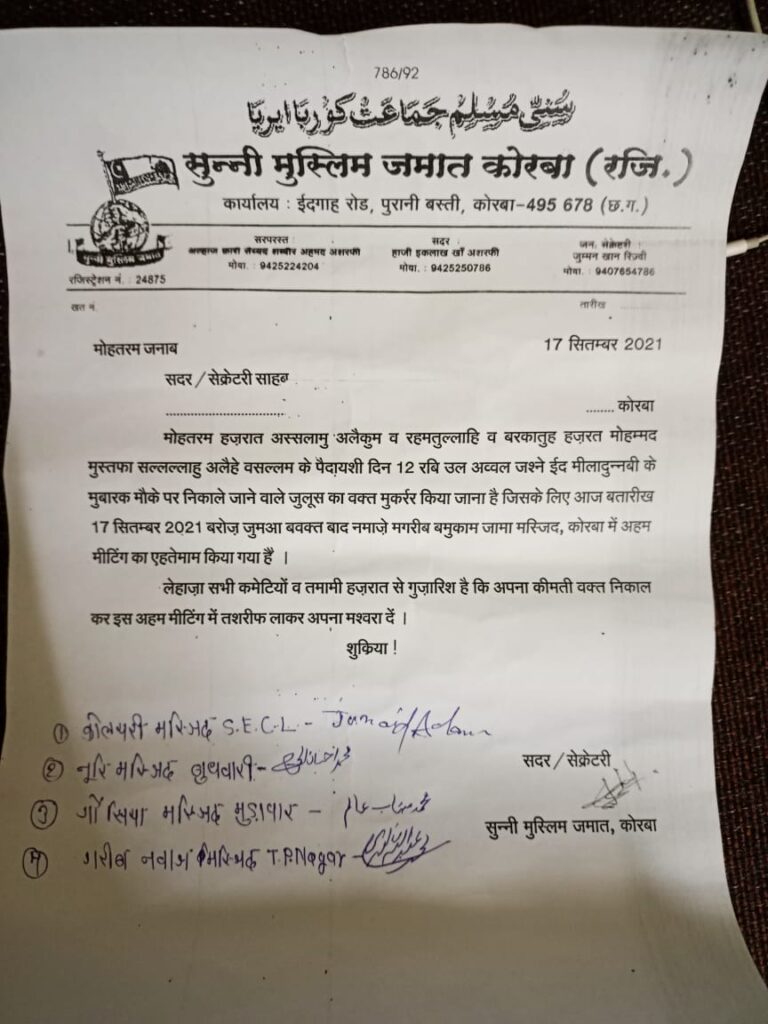 786/92
سُنّی مُسْلِم جَمَاعَتْ کوربا ایریا
सुन्नी मुस्लिम जमात कोरबा (रजि.)
कार्यालय : ईदगाह रोड, पुरानी बस्ती, कोरबा-495 678 (छ.ग.)
सुन्नी मुस्लिम जमात
रजिस्ट्रेशन नं. : 24875
सरपरस्त :
अल्हाज क़ारी सैय्यद शब्बीर अहमद अशरफी
मोबा. : 9425224204
सदर :
हाजी इकलाख खाँ अशरफी
मोबा. : 9425250786
जन. सेक्रेटरी :
जुम्मन खान रिज़वी
मोबा. : 9407654786
खत नं.
तारीख
मोहतरम जनाब
17 सितम्बर 2021
सदर / सेक्रेटरी साहब
................................ ........ कोरबा
मोहतरम हज़रात अस्सलामु अलैकुम व रहमतुल्लाहि व बरकातुह हज़रत मोहम्मद
मुस्तफा सल्लल्लाहु अलैहे वसल्लम के पैदायशी दिन 12 रबि उल अव्वल जश्ने ईद मीलादुन्नबी के
मुबारक मौके पर निकाले जाने वाले जुलूस का वक्त मुकर्रर किया जाना है जिसके लिए आज बतारीख
17 सितम्बर 2021 बरोज़ जुमआ बवक्त बाद नमाज़े मगरीब बमुकाम जामा मस्जिद, कोरबा में अहम
मीटिंग का एहतेमाम किया गया हैं ।
लेहाज़ा सभी कमेटियों व तमामी हज़रात से गुज़ारिश है कि अपना कीमती वक्त निकाल
कर इस अहम मीटिंग में तशरीफ लाकर अपना मश्वरा दें ।
शुक्रिया !
① कोलयरी मस्जिद S.E.C.L -
② नूरि मस्जिद बुधवारी -
③ गौसिया मस्जिद मुड़ापार -
④ गरीब नवाज मस्जिद T.P.Nagar -
सदर / सेक्रेटरी
सुन्नी मुस्लिम जमात, कोरबा